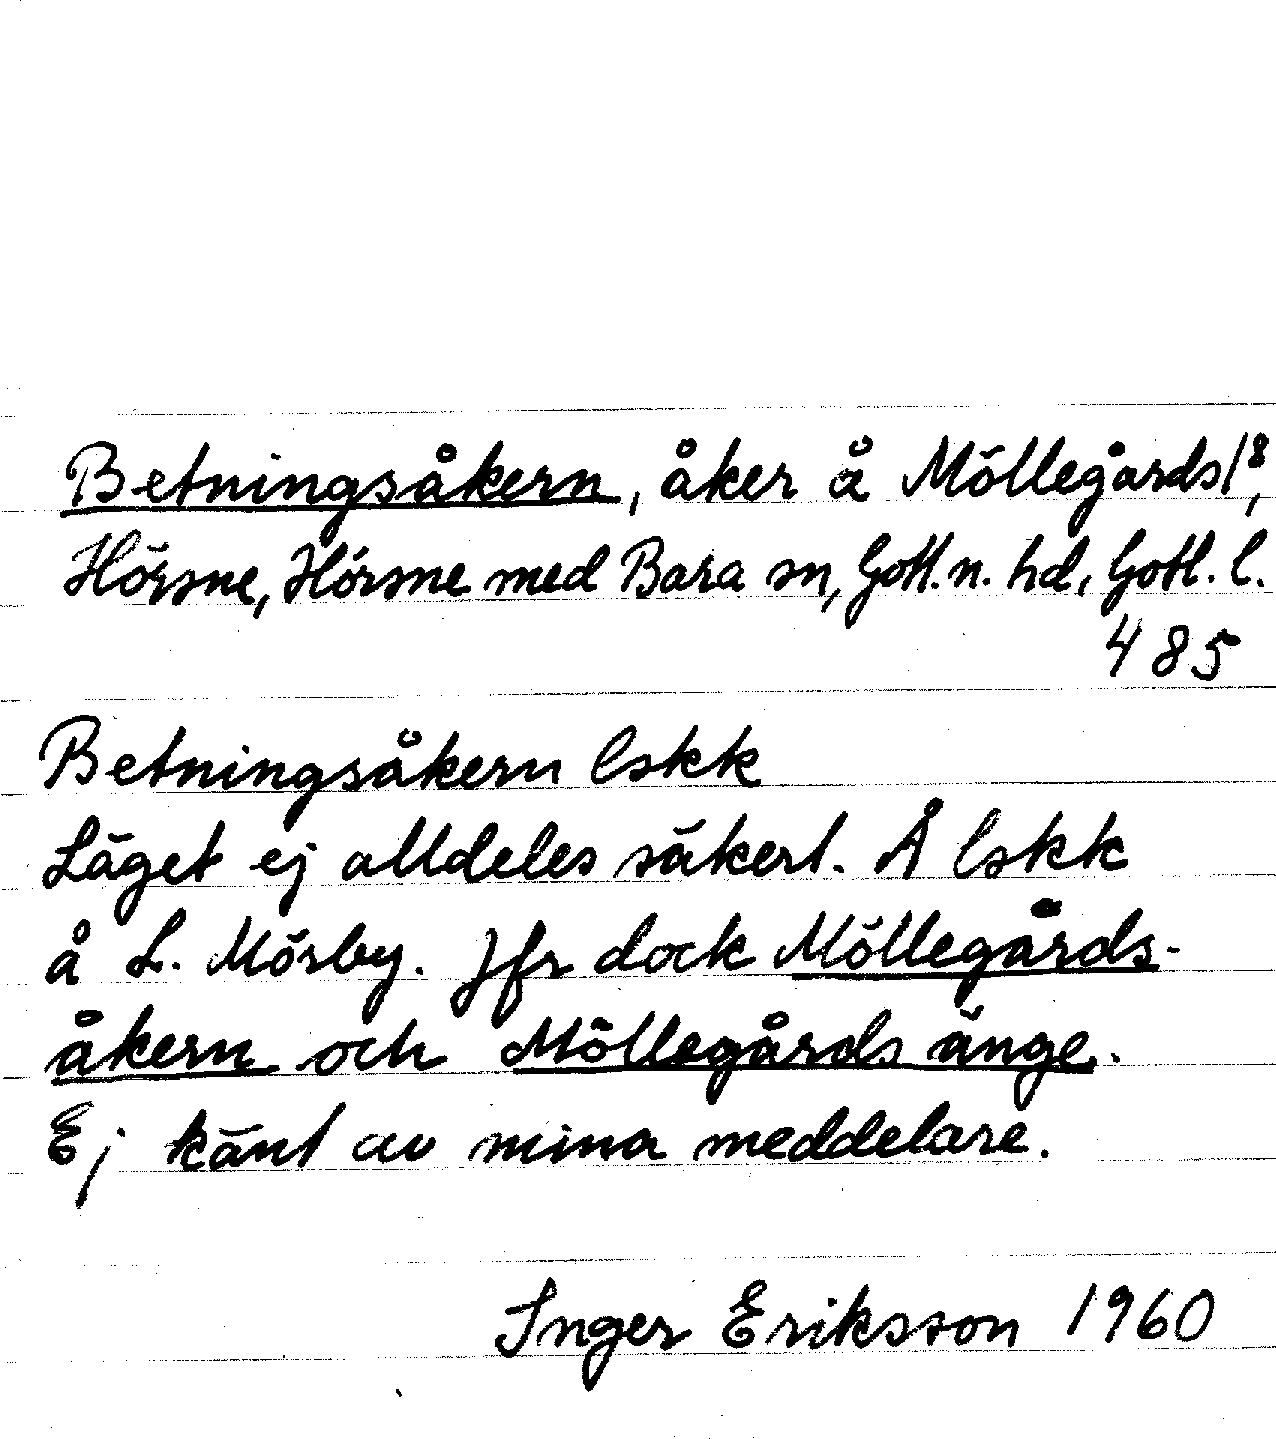 Betningsåkern, åker å Möllegårds 1⁸,
Hörsne, Hörsne med Bara sn, Gotl. n. hd, Gotl. l.
485
Betningsåkern lskk
Läget ej alldeles säkert. Å lskk
å L. Mörby. Jfr dock Möllegårds-
åkern och Möllegårds änge.
Ej känt av mina meddelare.
Inger Eriksson 1960